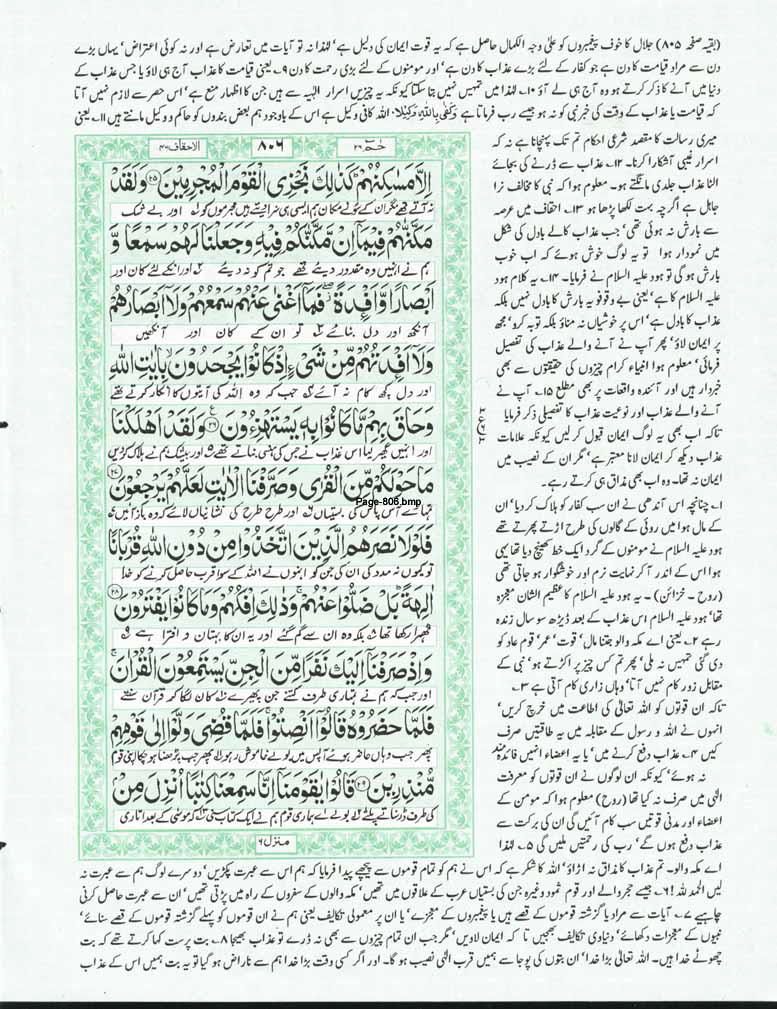 (بقیہ صفحہ ۸۰۵) جلال کا خوف پیغمبروں کو علیٰ وجہ الکمال حاصل ہے کہ یہ قوت ایمان کی دلیل ہے' لہٰذا نہ تو آیات میں تعارض ہے اور نہ کوئی اعتراض' یہاں بڑے
دن سے مراد قیامت کا دن ہے جو کفار کے لئے بڑے عذاب کا دن ہے' اور مومنوں کے لئے بڑی رحمت کا دن ۹۔ یعنی قیامت کا عذاب آج ہی لاؤ یا جس عذاب کے
دنیا میں آنے کا ذکر کرتے ہو وہ آج ہی لے آؤ ۱۰۔ لہٰذا میں تمہیں نہیں بتا سکتا کیونکہ یہ چیزیں اسرار الٰہیہ سے ہیں جن کا اظہار منع ہے' اس حصر سے لازم نہیں آتا
کہ قیامت یا عذاب کے وقت کی خبر نبی کو نہ ہو جیسے رب فرماتا ہے وَكَفٰى بِاللّٰهِ وَكِيْلًا' اللہ کافی وکیل ہے اس کے باوجود ہم بعض بندوں کو حاکم و وکیل مانتے ہیں ۱۱۔ یعنی
میری رسالت کا مقصد شرعی احکام تم تک پہنچانا ہے نہ کہ
اسرار غیبی آشکارا کرنا۔ ۱۲۔ عذاب سے ڈرنے کی بجائے
الٹا عذاب جلدی مانگتے ہو۔ معلوم ہوا کہ نبی کا مخالف نرا
جاہل ہے اگرچہ بہت لکھا پڑھا ہو ۱۳۔ احقاف میں عرصہ
سے بارش نہ ہوئی تھی' جب عذاب کالے بادل کی شکل
میں نمودار ہوا تو یہ لوگ خوش ہوئے کہ اب خوب
بارش ہو گی تو ہود علیہ السلام نے فرمایا۔ ۱۴۔ یہ کلام ہود
علیہ السلام کا ہے' یعنی بے وقوفو یہ بارش کا بادل نہیں بلکہ
عذاب کا بادل ہے' اس پر خوشیاں نہ مناؤ بلکہ توبہ کرو' مجھ
پر ایمان لاؤ' پھر آپ نے آنے والے عذاب کی تفصیل
فرمائی' معلوم ہوا انبیاء کرام چیزوں کی حقیقتوں سے بھی
خبردار ہیں اور آئندہ واقعات پر بھی مطلع ۱۵۔ آپ نے
آنے والے عذاب اور نوعیت عذاب کا تفصیلی ذکر فرمایا
تاکہ اب بھی یہ لوگ ایمان قبول کر لیں کیونکہ علامات
عذاب دیکھ کر ایمان لانا معتبر ہے' مگر ان کے نصیب میں
ایمان نہ تھا۔ وہ اب بھی مذاق ہی کرتے رہے۔
۱۔ چنانچہ اس آندھی نے ان سب کفار کو ہلاک کر دیا' ان
کے مال ہوا میں روئی کے گالوں کی طرح اڑتے پھرتے تھے
ہود علیہ السلام نے مومنوں کے گرد ایک خط کھینچ دیا تھا یہی
ہوا اس کے اندر آکر نہایت نرم اور خوشگوار ہو جاتی تھی
(روح ۔ خزائن) ۔ یہ ہود علیہ السلام کا عظیم الشان معجزہ
تھا' ہود علیہ السلام اس عذاب کے بعد ڈیڑھ سو سال زندہ
رہے ۲۔ یعنی اے مکہ والو جتنا مال' قوت' عمر' قوم عاد کو
دی گئی تمہیں نہ ملی' پھر تم کس چیز پر اکڑتے ہو' نبی کے
مقابل زور کام نہیں آتا' وہاں زاری کام آتی ہے ۳۔
تاکہ ان قوتوں کو اللہ تعالیٰ کی اطاعت میں خرچ کریں'
انہوں نے اللہ و رسول کے مقابلہ میں یہ طاقتیں صرف
کیں ۴۔ عذاب دفع کرنے میں' یا یہ اعضاء انہیں فائدہ مند
نہ ہوئے' کیونکہ ان لوگوں نے ان قوتوں کو معرفت
الٰہی میں صرف نہ کیا تھا (روح) معلوم ہوا کہ مومن کے
اعضاء اور مدنی قوتیں سب کام آئیں گی ان کی برکت سے
عذاب دفع ہوں گے' رب کی رحمتیں ملیں گی ۵۔ لہٰذا
الاحقاف ۴۶
۸۰۶
حٰمٓ ۲۶
اِلَّا مَسٰكِنُهُمْ ؕ كَذٰلِكَ نَجْزِي الْقَوْمَ الْمُجْرِمِيْنَ ﴿۲۵﴾ وَلَقَدْ
نہ آتے تھے مگر ان کے سُونے مکان ہم ایسی ہی سزا دیتے ہیں مجرموں کو اور بے شک
مَكَّنّٰهُمْ فِيْمَاۤ اِنْ مَّكَّنّٰكُمْ فِيْهِ وَجَعَلْنَا لَهُمْ سَمْعًا وَّ
ہم نے انہیں وہ مقدور دیئے تھے جو تم کو نہ دیئے اور انکے لئے کان اور
اَبْصَارًا وَّاَفْـِٕدَةً ۖ فَمَاۤ اَغْنٰى عَنْهُمْ سَمْعُهُمْ وَلَاۤ اَبْصَارُهُمْ
آنکھ اور دل بنائے تو ان کے کان اور آنکھیں
وَلَاۤ اَفْـِٕدَتُهُمْ مِّنْ شَيْءٍ اِذْ كَانُوْا يَجْحَدُوْنَ ۙ بِاٰيٰتِ اللّٰهِ
اور دل کچھ کام نہ آئے جب کہ وہ اللہ کی آیتوں کا انکار کرتے تھے
وَحَاقَ بِهِمْ مَّا كَانُوْا بِهٖ يَسْتَهْزِءُوْنَ ﴿۲۶﴾ وَلَقَدْ اَهْلَكْنَا
اور انہیں گھیر لیا اس عذاب نے جس کی ہنسی بناتے تھے اور بیشک ہم نے ہلاک کر دیں
مَا حَوْلَكُمْ مِّنَ الْقُرٰى وَصَرَّفْنَا الْاٰيٰتِ لَعَلَّهُمْ يَرْجِعُوْنَ ﴿۲۷﴾
تمہارے آس پاس کی بستیاں اور طرح طرح کی نشانیاں لائے کہ وہ باز آئیں
Page-806.bmp
فَلَوْلَا نَصَرَهُمُ الَّذِيْنَ اتَّخَذُوْا مِنْ دُوْنِ اللّٰهِ قُرْبَانًا
تو کیوں نہ مدد کی ان کی جن کو انہوں نے اللہ کے سوا قرب حاصل کرنے کو خدا
اٰلِهَةً ؕ بَلْ ضَلُّوْا عَنْهُمْ ۚ وَذٰلِكَ اِفْكُهُمْ وَمَا كَانُوْا يَفْتَرُوْنَ ﴿۲۸﴾
ٹھہرا رکھا تھا بلکہ وہ ان سے گم گئے اور یہ ان کا بہتان و افترا ہے
وَاِذْ صَرَفْنَاۤ اِلَيْكَ نَفَرًا مِّنَ الْجِنِّ يَسْتَمِعُوْنَ الْقُرْاٰنَ ۚ
اور جب کہ ہم نے تمہاری طرف کتنے جن پھیرے کان لگا کر قرآن سنتے
فَلَمَّا حَضَرُوْهُ قَالُوْۤا اَنْصِتُوْا ۚ فَلَمَّا قُضِيَ وَلَّوْا اِلٰى قَوْمِهِمْ
پھر جب وہاں حاضر ہوئے آپس میں بولے خاموش رہو پھر جب پڑھنا ہو چکا اپنی قوم
مُّنْذِرِيْنَ ﴿۲۹﴾ قَالُوْا يٰقَوْمَنَاۤ اِنَّا سَمِعْنَا كِتٰبًا اُنْزِلَ مِنْ
کی طرف ڈر سناتے پلٹے بولے اے ہماری قوم ہم نے ایک کتاب سنی کہ موسیٰ کے بعد اتاری
منزل ۶
اے مکہ والو۔ تم عذاب کا مذاق نہ اڑاؤ' اللہ کا شکر ہے کہ اس نے ہم کو تمام قوموں سے پیچھے پیدا فرمایا کہ ہم اس سے عبرت پکڑیں' دوسرے لوگ ہم سے عبرت نہ
لیں الحمد للہ ! ۶۔ جیسے حجر والے اور قوم ثمود وغیرہ جن کی بستیاں عرب کے علاقوں میں تھیں' مکہ والوں کے سفروں کے راہ میں پڑتی تھیں' ان سے عبرت حاصل کرنی
چاہیے ۷۔ آیات سے مراد یا گزشتہ قوموں کے قصے ہیں یا پیغمبروں کے معجزے' یا ان پر معمولی تکالیف یعنی ہم نے ان قوموں کو پہلے گزشتہ قوموں کے قصے سنائے'
نبیوں کے معجزات دکھائے' دنیاوی تکالیف بھیجیں تا کہ ایمان لاویں' مگر جب ان تمام چیزوں سے بھی نہ ڈرے تو عذاب بھیجا ۸۔ بت پرست کہا کرتے تھے کہ بت
چھوٹے خدا ہیں۔ اللہ تعالیٰ بڑا خدا' ان بتوں کی پوجا سے ہمیں قرب الٰہی نصیب ہو گا۔ اور اگر کسی وقت بڑا خدا ہم سے ناراض ہو گیا تو یہ بت ہمیں اس کے عذاب